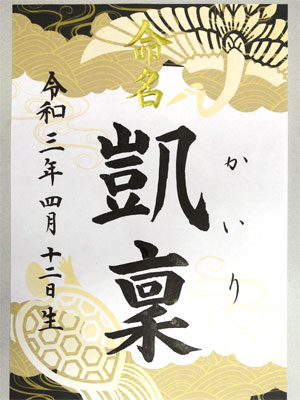 命名
かいり
凱稟
令和三年四月十二日生